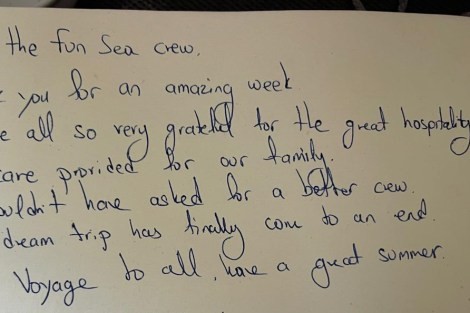 the fun Sea crew.
you for an amazing week
all so very gratefull for the great hospitality
care provided for our family.
ouldn't have asked for a better crew.
dream trip has finally come to an end.
Voyage to all, have a great summer.